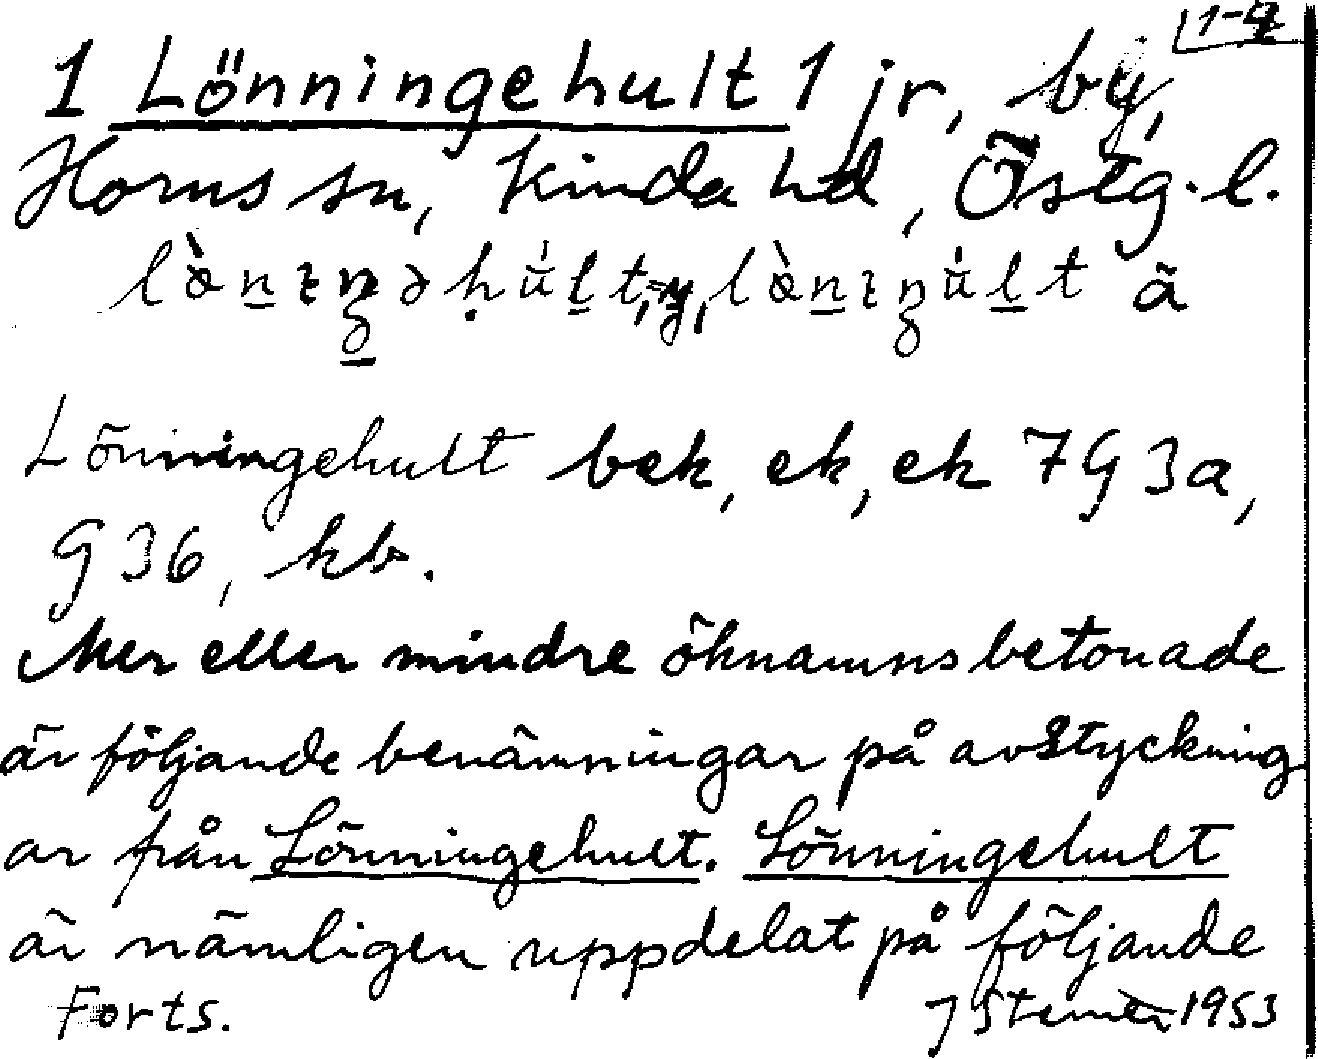 1-4
1 Lönningehult 1 jr, by,
Horns sn, Kinda hd, Östg. l.
Lönningehult bek, ek, ek 7G3a,
G3b, kb.
Mer eller mindre öknamnsbetonade
är följande benämningar på avstyckning
ar från Lönningehult. Lönningehult
är nämligen uppdelat på följande
Forts. 1953